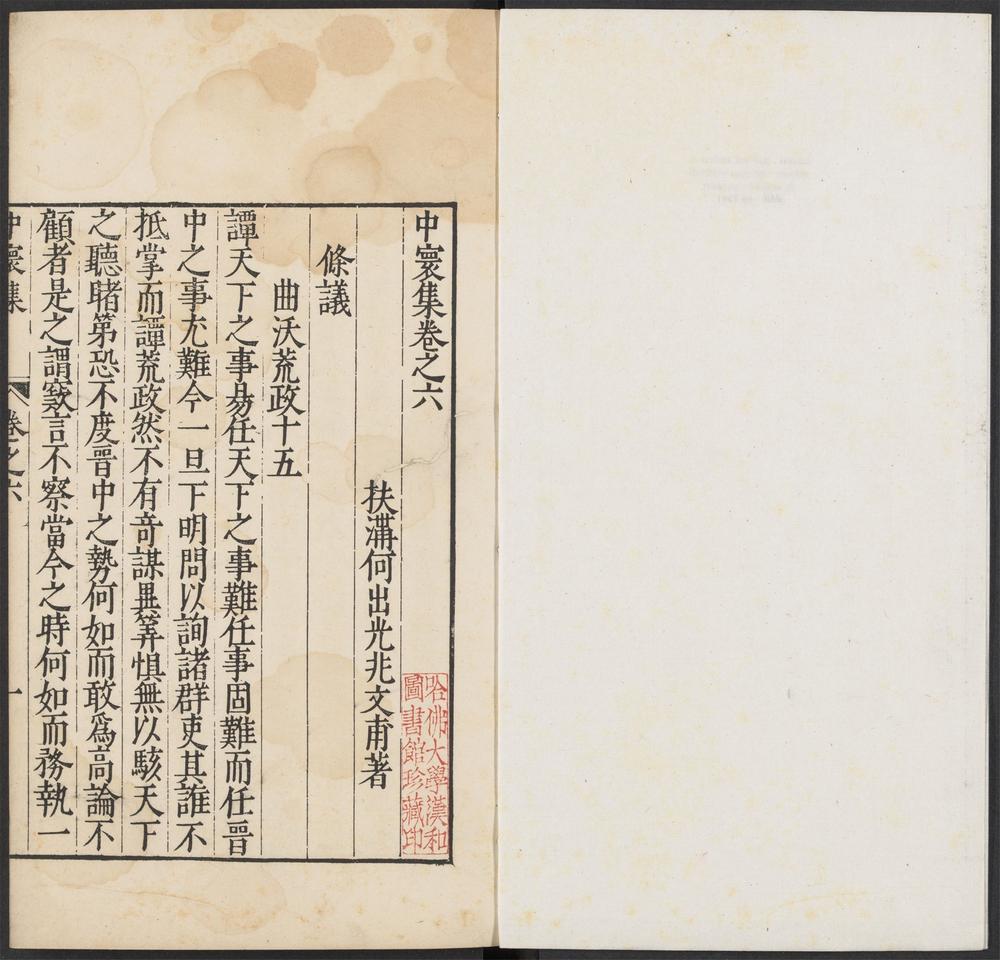 中寰集卷之六
扶溝何出光兆文甫著
條議
曲沃荒政十五
譚天下之事易任天下之事難任事固難而任晉
中之事尤難今一旦下明問以詢諸群吏其誰不
抵掌而譚荒政然不有奇謀異筭惧無以駭天下
之聽睹第恐不度晉中之勢何如而敢爲高論不
顧者是之謂窾言不察當今之時何如而務執一
中寰集
卷之六
一
哈佛大學漢和
圖書館珍藏印